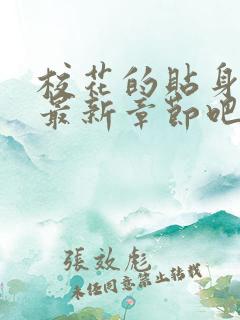 校花的貼身
最新章節吧
張效彪
未經同意禁止轉載